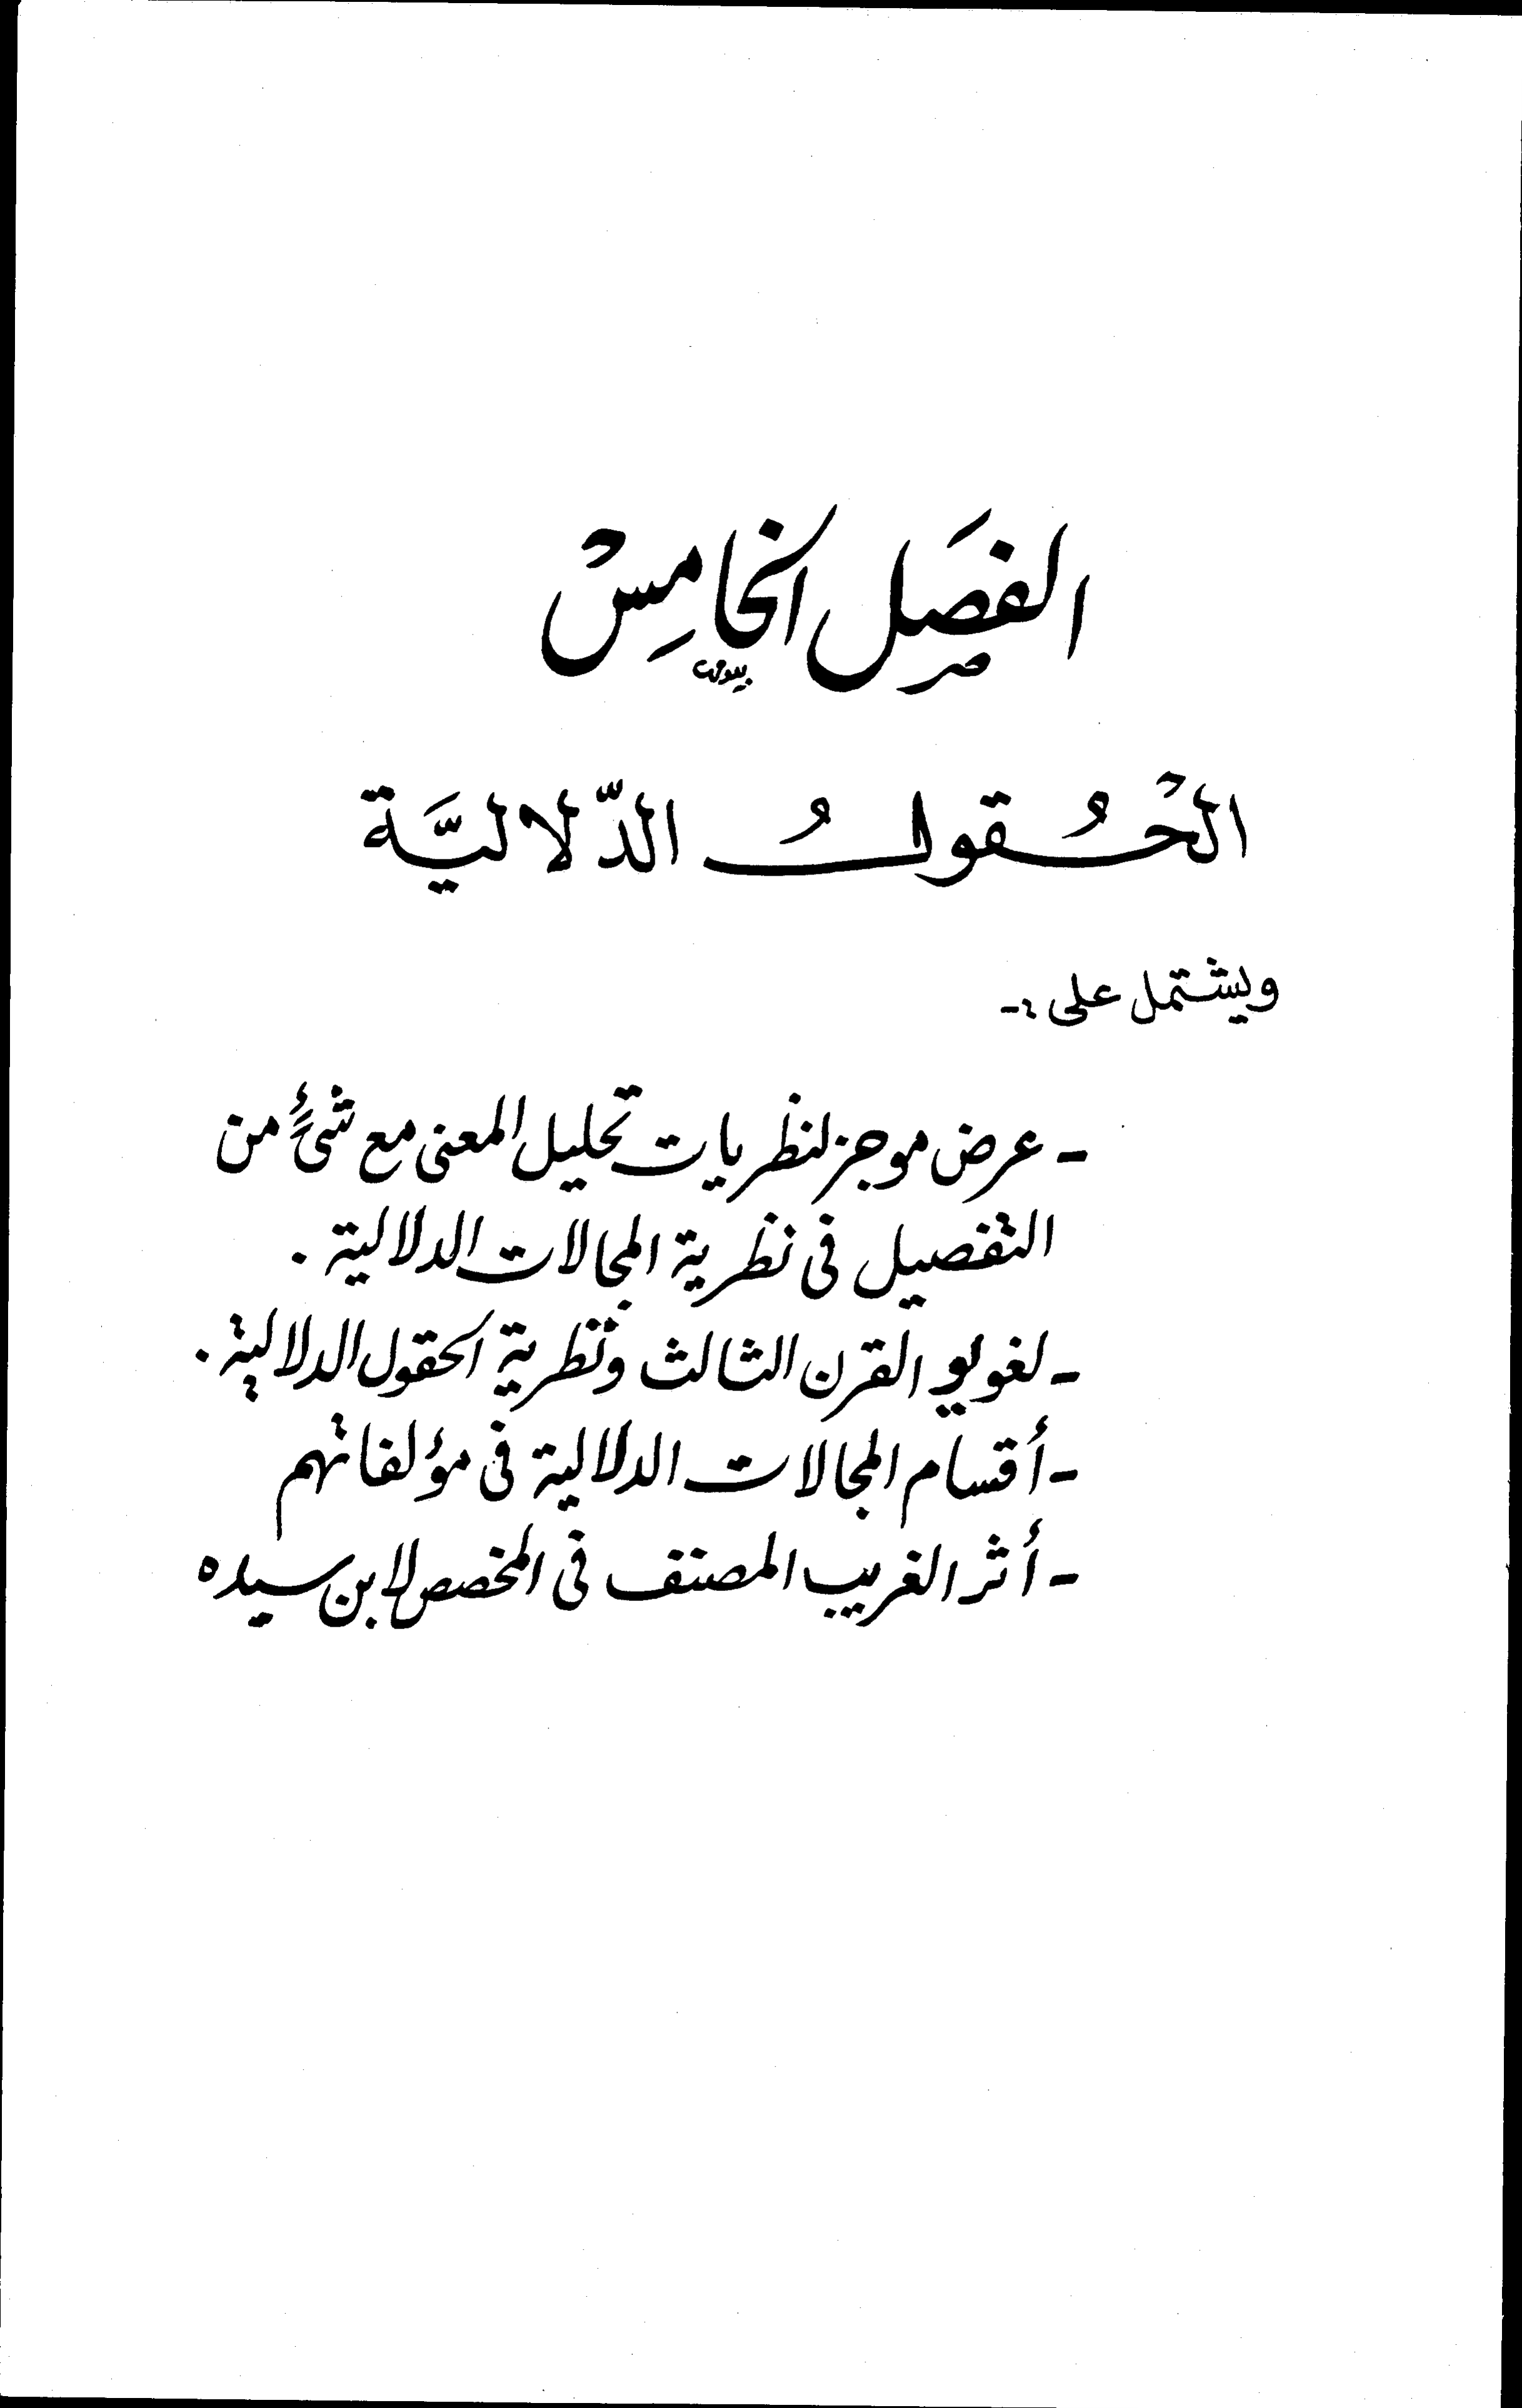 الفصَل الخامِسْ
الحُقولُ الدّلاليَّة
ويشتمل على :-
- عرض موجز لنظريات تحليل المعنى مع شئٍ من
التفصيل فى نظرية المجالات الدلالية .
- لغويو القرن الثالث ونظرية الحقول الدلالية .
- أقسام المجالات الدلالية فى مؤلفاتهم
- أثر الغريب المصنف فى المخصص لابن سيده